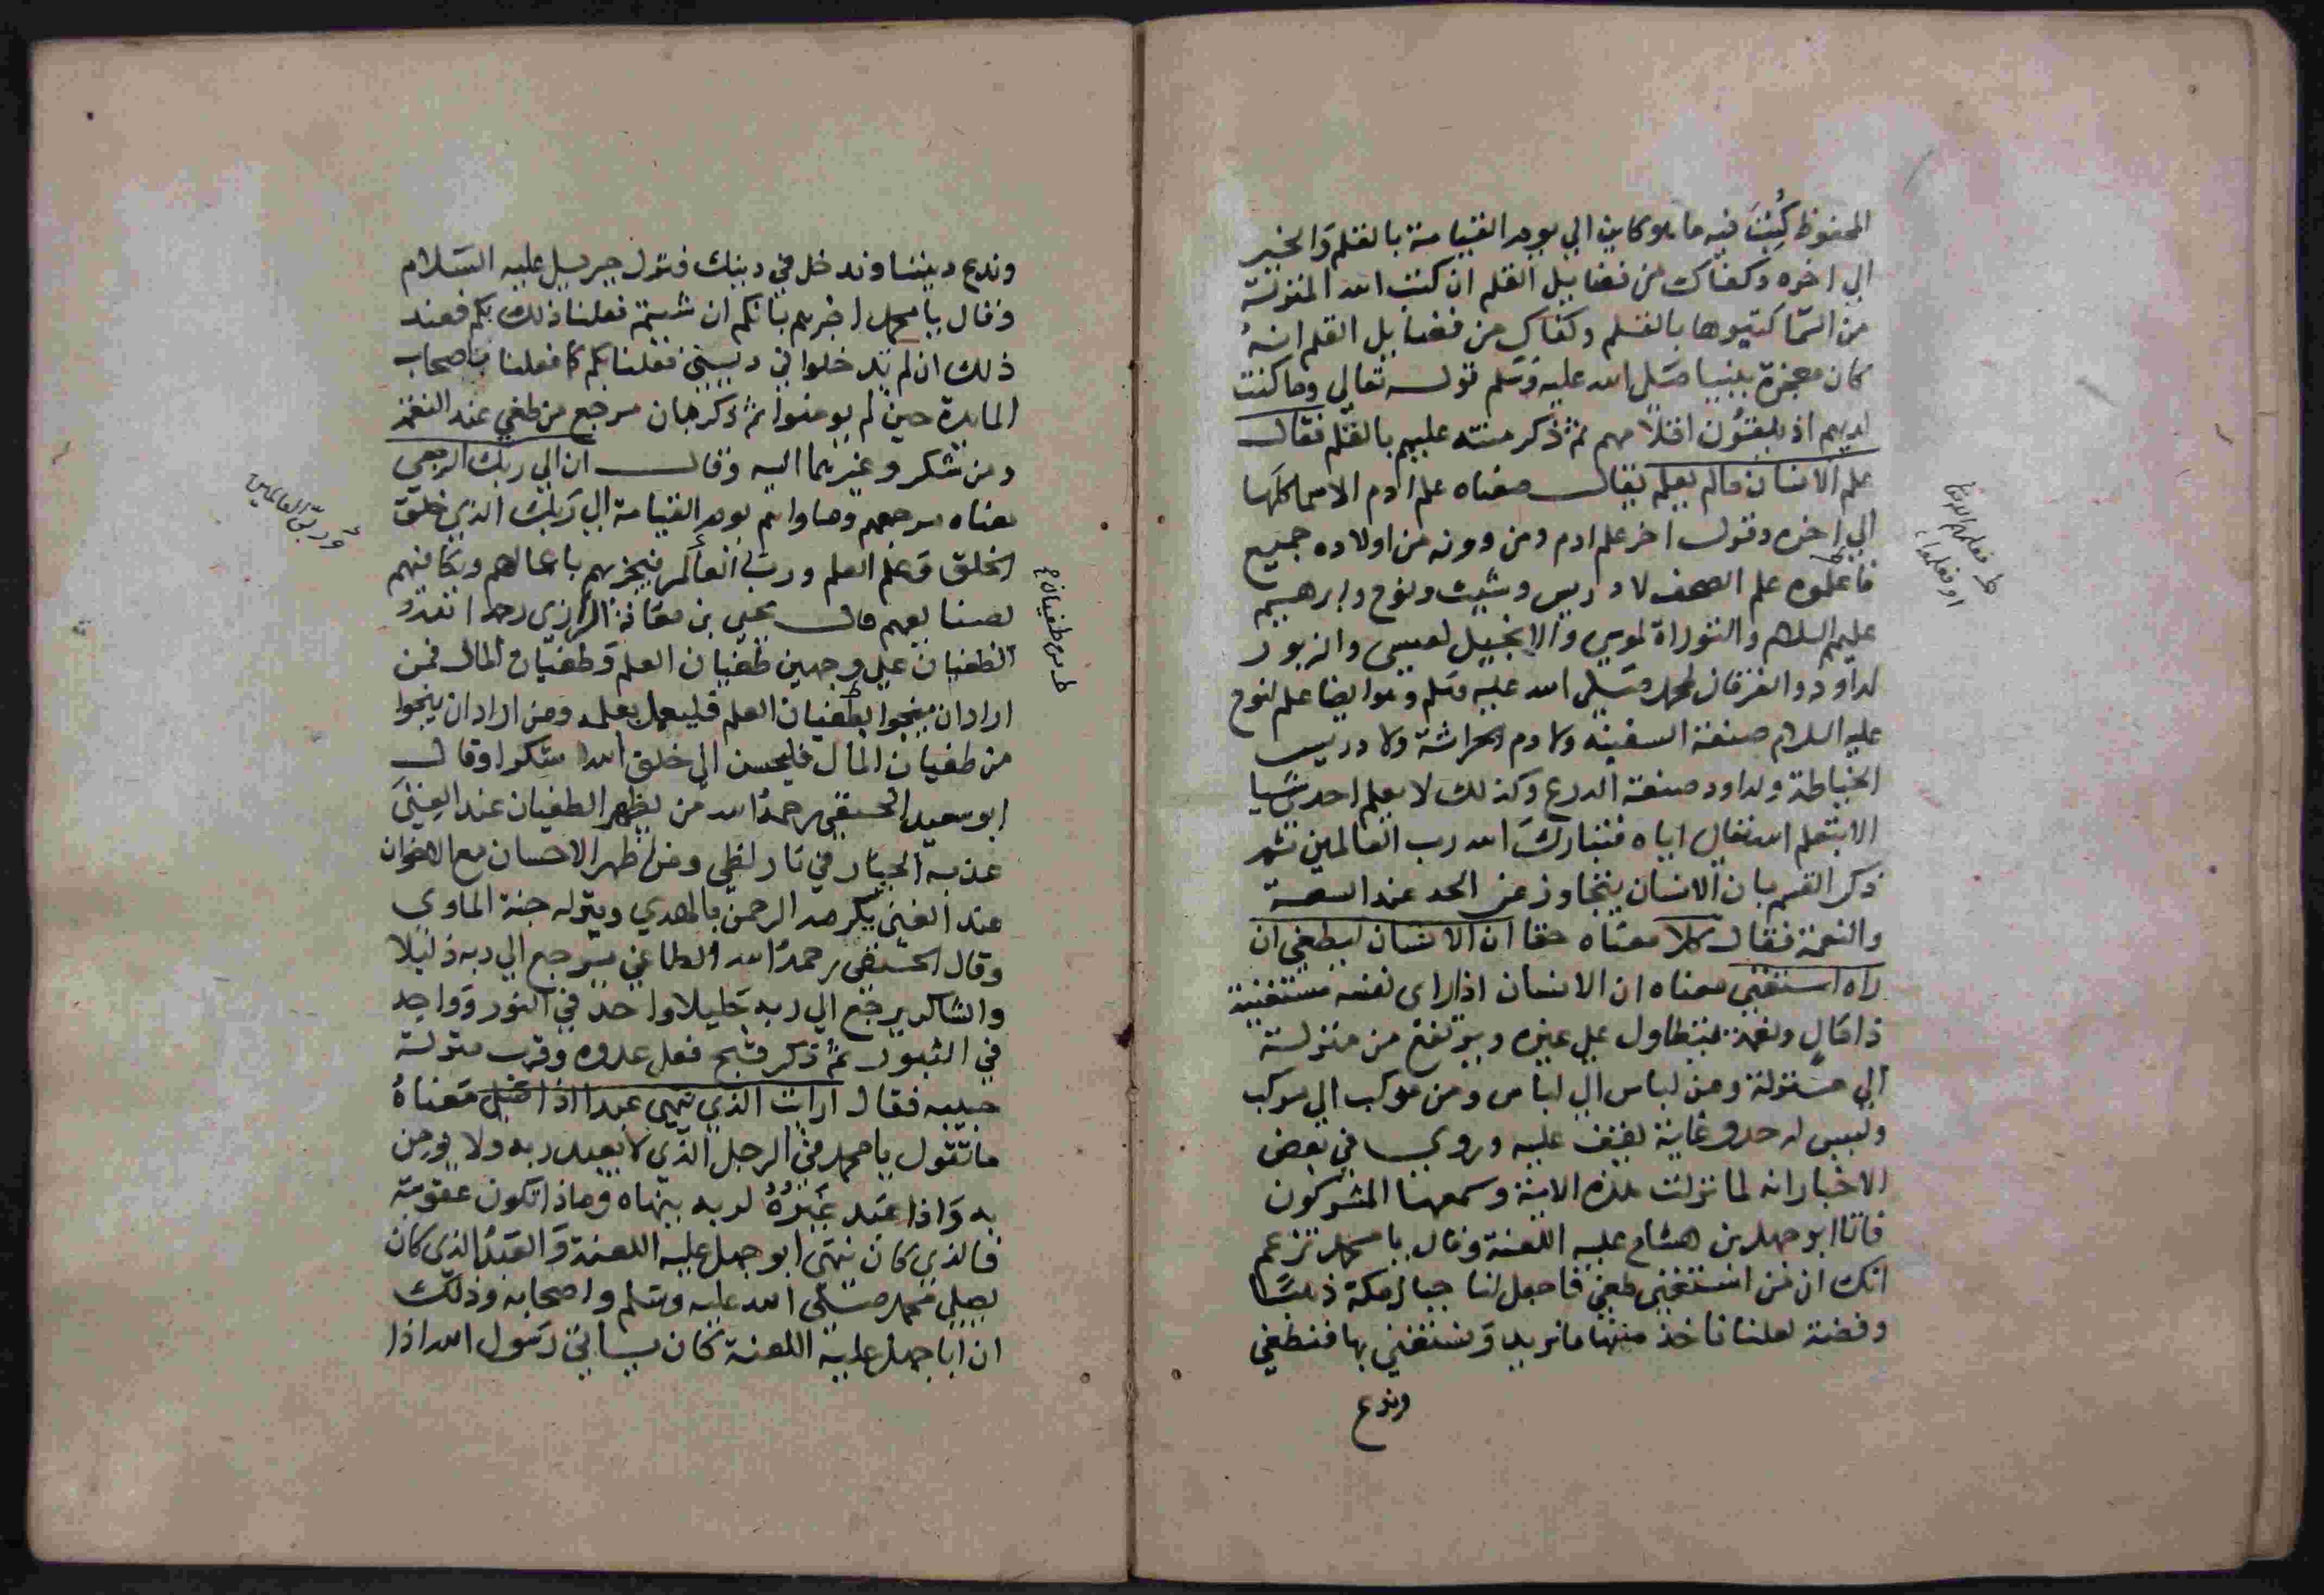 المحفوظ كُتِبَ فيه ما هو كاين الي يوم القيامة بالقلم والخبر
الي اخره وكفاك من فضايل القلم ان كتب الله المنزلة
من السّما كتبوها بالقلم وكفاك من فضايل القلم انهُ
كان معجزة بنبينا صَلى الله عليه وسَلم قوله تعالي وما كنت
لديهم اذ يلقُون اقلامهم ثم ذكر منته عليهم بالقلم فقال
علم الانسان مالم يعلم يقال معناه علم ادم الاسما كلها
الي اخره وقول اخر علم ادم ومن دونه من اولاده جميع
فاعلموه علم الصحف لادريس وشيث ونوح وابرهيم
عليهم السلام والتوراة لموسي والانجيل لعيسي والزبور
لداود والفرقان لمحمد صَلي الله عليه وسَلم وهو ايضا علم لنوح
عليه السلام صنعة السفينه ولادم الحراثة ولادريس
الخياطة ولداود صنعة الدرع وكذلك لا يعلم احد شيا
الا بتعلم الله تعالي اياه فتبارك الله رب العالمين ثم
ذكر القسم بان الانسان يتجاوز عن الحد عند السعة
والنعمة فقال كلا معناه حقا ان الانسان ليطغي ان
راه استغني معناه ان الانسان اذا راى نفسه مستغنية
ذا مال ونعمة يتطاول علي غيره ويرتفع من منزلة
الي منزلة ومن لباس الي لباس ومن مركب الي مركب
وليس له حد وغاية يقف عليه وروي في بعض
الاخبار انه لما نزلت هذه الاية وسمعها المشركون
فاتا ابو جهل بن هشام عليه اللعنة وقال يا محمد تزعم
انك ان من استغني طغي فاجعل لنا جبال مكة ذهبًا
وفضة لعلنا ناخذ منها ما نريد ونستغني بها فنطغي
وندع
ط فعلمهم الله
او فعلموا
وندع ديننا وندخل في دينك فنزل جبريل عليه السَلام
وقال يا محمد اخبرهم بانكم ان شيتم فعلنا ذلك بكم فعند
ذلك ان لم تدخلوا في ديني فعلنا بكم كما فعلنا باصحاب
المايدة حين لم يومنوا ثم ذكر بان مرجع من طغي عند النعم
ومن شكر وغيرهما اليه وقال ان الي ربك الرجعي
معناه مرجعهم وماواهم يوم القيامة الي ربك الذي خلق
الخلق وعلم العلم ورب العالم فيجزيهم باعمالهم ويكافيهم
بصنايعهم قال يحيى بن معاذ الرازي رحمه الله
الطغيان علي وجهين طغيان العلم وطغيان المال فمن
اراد ان ينجوا بطغيان العلم فليعمل بعلمه ومن اراد ان ينجوا
من طغيان المال فليحسن الي خلق الله شكرا وقال
ابو سعيد الحنفي رحمهُ الله من يظهر الطغيان عند الغِني
عذبه الجبار في نار لظي ومن اظهر الاحسان مع الاخوان
عند الغني يكرمه الرحمن بالهدي وينزله جنة الماوي
وقال الحنفي رحمهُ الله الطاغي يرجع الي ربه ذليلا
والشاكر يرجع الي ربه جليلا واحد في النور وواحد
في الثبور ثم ذكر قبح فعل عدوه وقرب منزلة
حبيبه فقال ارايت الذي ينهي عبدا اذا صلي معناهُ
ما تقول يا محمد في الرجل الذي لا يعبد ربه ولا يومن
به واذا عَبد غَيْرُهُ لربه ينهاه وماذا تكون عقوبته
فالذي كان ينهَى ابو جهل عليه اللعنة والعَبدُ الذي كان
يصلي محمد صَلَّى الله عليه وسَلم واصحابه وذلك
ان ابا جهل عليه اللعنة كان ياتي رَسُول الله اذا
ورب العالمين
ط من طغيان